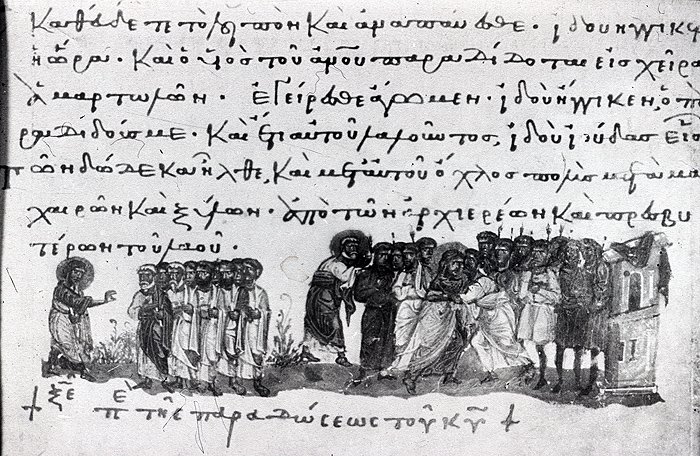 Καθεύδετε τὸ λοιπὸν καὶ ἀναπαύεσθε· ἰδοὺ ἤγγικεν
ἡ ὥρα· Καὶ ὁ υἱὸς τοῦ ἀνου παραδίδοται εἰς χεῖρας
ἁμαρτωλῶν· ἐγείρεσθε ἄγωμεν· ἰδοὺ ἤγγικεν, ὁ πα
ραδιδούς με· Καὶ ἔτι αὐτοῦ λαλοῦντος, ἰδοὺ ἰούδας εἷς
τῶν δώδεκα ἦλθε, καὶ μετ' αὐτοῦ ὄχλος πολὺς μετὰ μα
χαιρῶν καὶ ξύλων· ἀπὸ τῶν ἀρχιερέων καὶ πρεσβυ
τέρων τοῦ λαοῦ·
π τῆς παραδώσεως τοῦ κυ